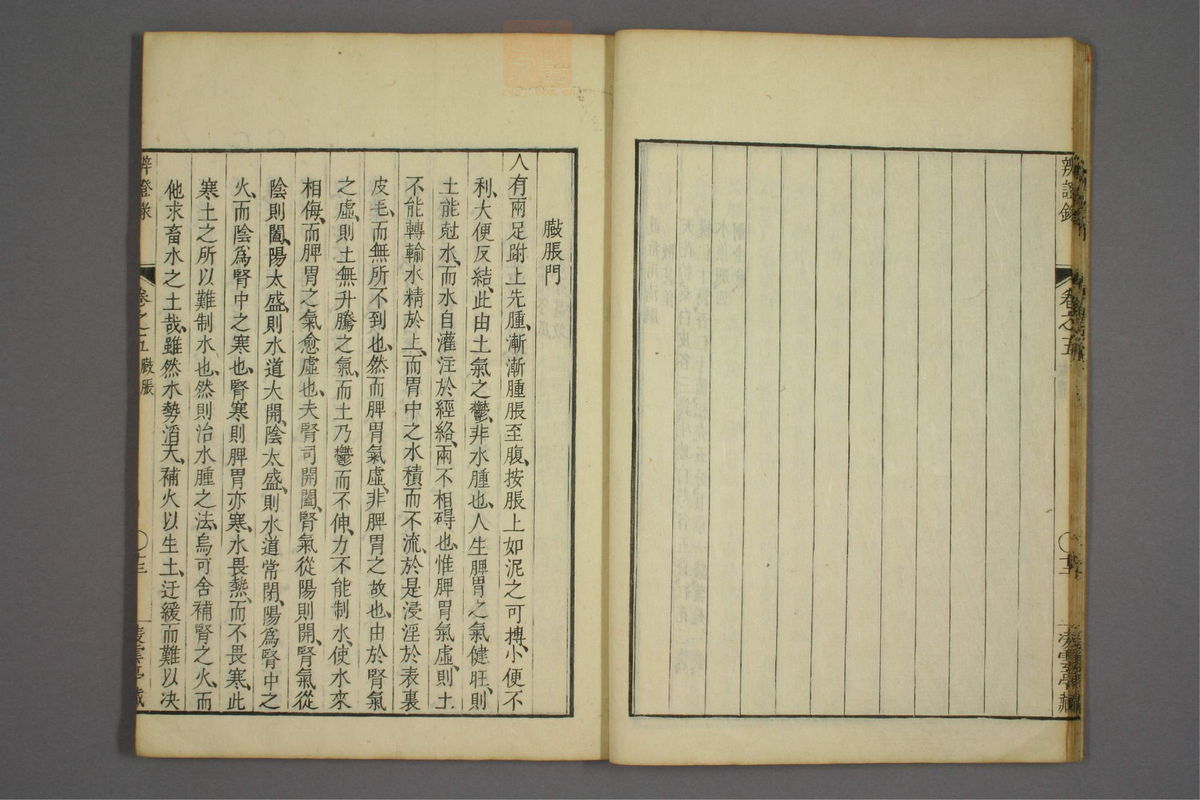 辨證錄
卷之五
凌雲亭藏
臌脹門
人有兩足跗上先腫漸漸腫脹至腹按脹上如泥之可摶小便不
利大便反結此由土氣之鬱非水腫也人生脾胃之氣健旺則
土能尅水而水自灌注於經絡兩不相碍也惟脾胃氣虛則土
不能轉輸水精於上而胃中之水積而不流於是浸淫於表裏
皮毛而無所不到也然而脾胃氣虛非脾胃之故也由於腎氣
之虛則土無升騰之氣而土乃鬱而不伸力不能制水使水來
相侮而脾胃之氣愈虛也夫腎司開闔腎氣從陽則開腎氣從
陰則闔陽太盛則水道大開陰太盛則水道常閉陽爲腎中之
火而陰爲腎中之寒也腎寒則脾胃亦寒水畏熱而不畏寒此
寒土之所以難制水也然則治水腫之法烏可舍補腎之火而
他求畜水之土哉雖然水勢滔天補火以生土迂緩而難以决
辨證录
卷之五 臌脹
十三
凌雲亭藏